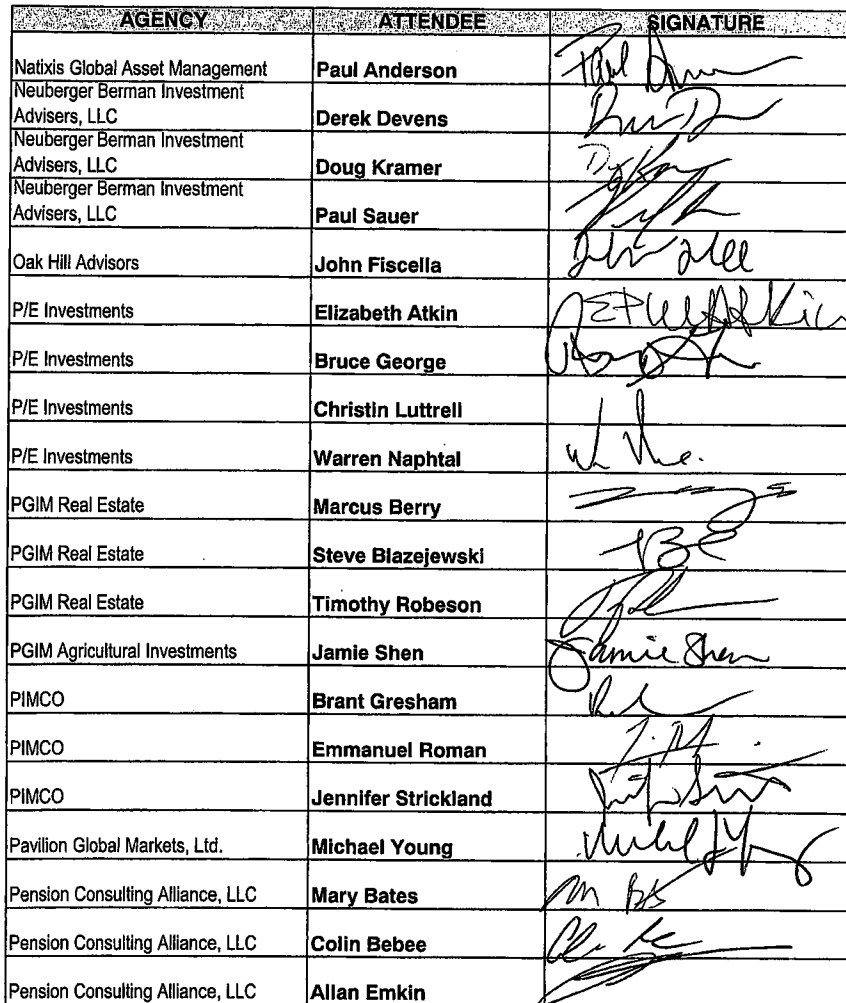 AGENCY ATTENDEE SIGNATURE
Natixis Global Asset Management Paul Anderson Paul
Neuberger Berman Investment
Advisers, LLC Derek Devens
Neuberger Berman Investment
Advisers, LLC Doug Kramer
Neuberger Berman Investment
Advisers, LLC Paul Sauer
Oak Hill Advisors John Fiscella
P/E Investments Elizabeth Atkin
P/E Investments Bruce George
P/E Investments Christin Luttrell
P/E Investments Warren Naphtal
PGIM Real Estate Marcus Berry
PGIM Real Estate Steve Blazejewski
PGIM Real Estate Timothy Robeson
PGIM Agricultural Investments Jamie Shen Jamie Shen
PIMCO Brant Gresham
PIMCO Emmanuel Roman
PIMCO Jennifer Strickland
Pavilion Global Markets, Ltd. Michael Young
Pension Consulting Alliance, LLC Mary Bates
Pension Consulting Alliance, LLC Colin Bebee
Pension Consulting Alliance, LLC Allan Emkin